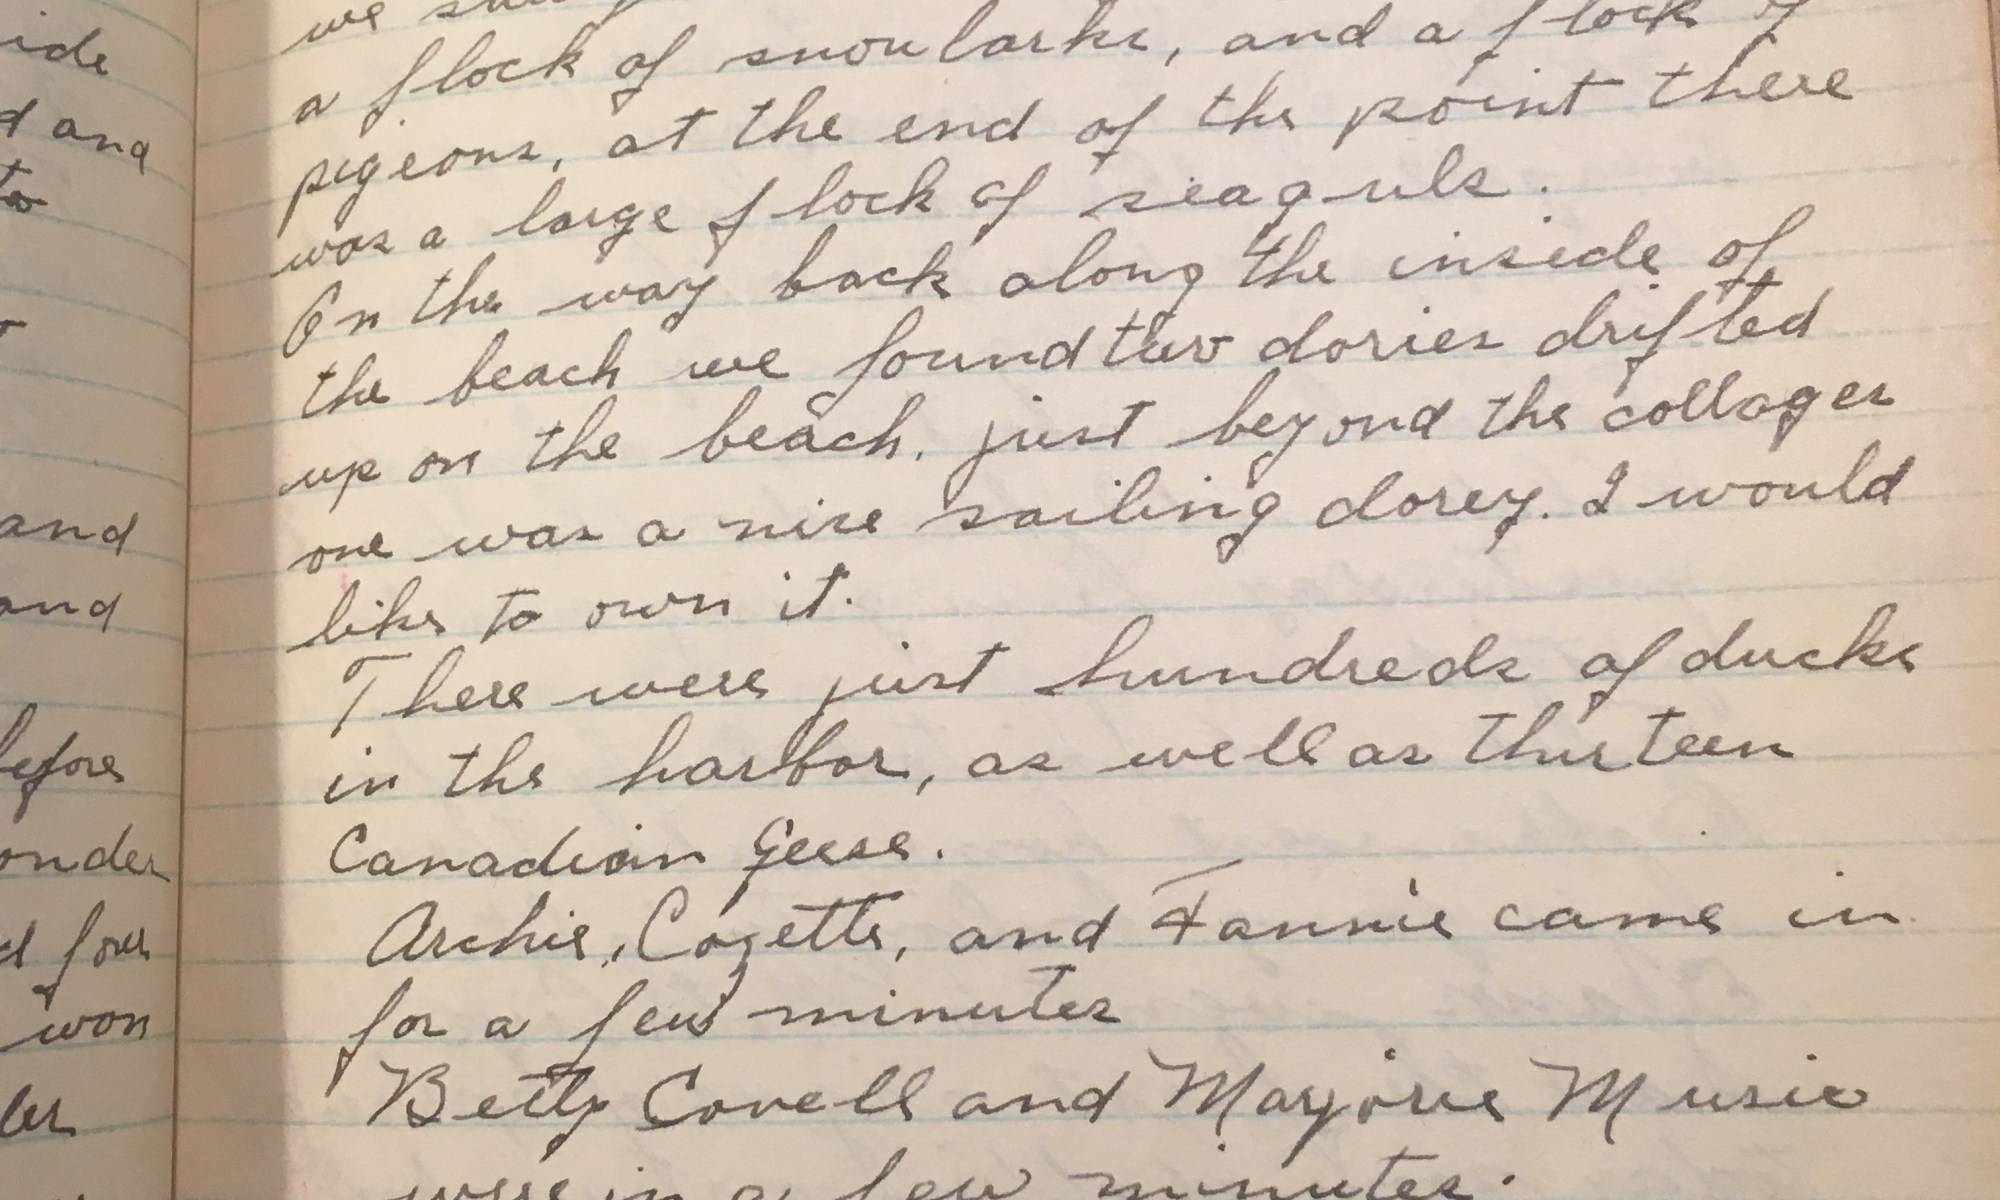 ide
d and
to
and
and
before
onder
d four
won
ler
we saw
a flock of snowlarks, and a flock of
pigeons, at the end of the point there
was a large flock of seaguls.
On the way back along the inside of
the beach we found two dories drifted
up on the beach, just beyond the collages
one was a nise sailing dorey. I would
like to own it.
There were just hundreds of ducks
in the harbor, as well as thirteen
Canadian Geese.
Archie, Cozette, and Fannie came in
for a few minutes
Betty Covell and Marjorie Music
were in a few minutes.